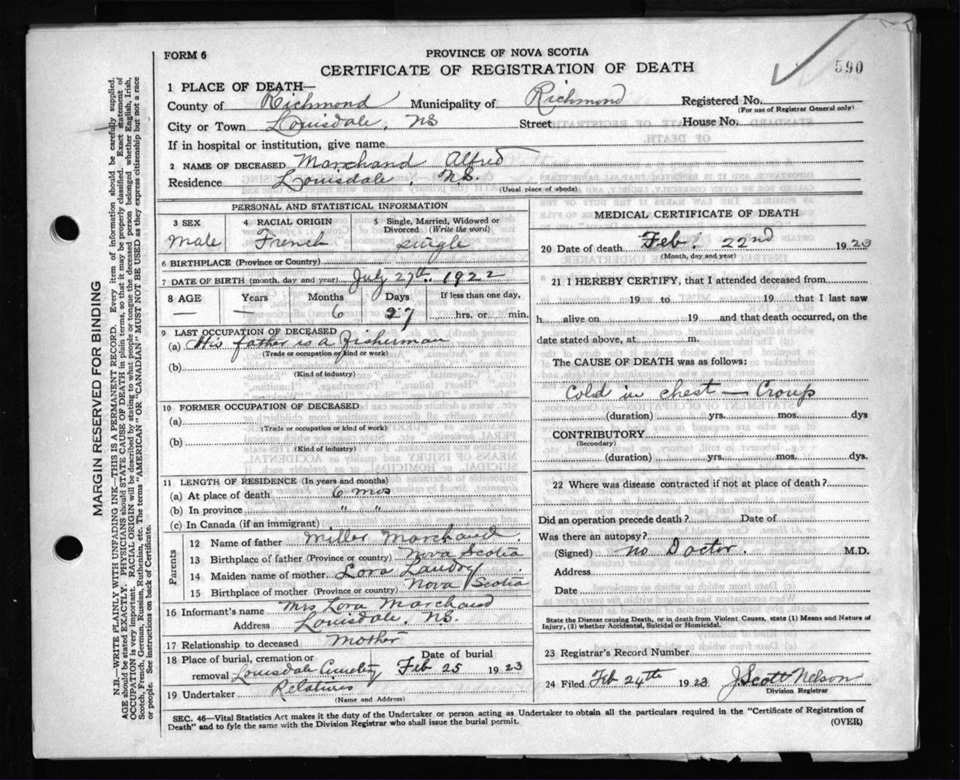 FORM 6
PROVINCE OF NOVA SCOTIA
CERTIFICATE OF REGISTRATION OF DEATH
590
1 PLACE OF DEATH—
County of Richmond Municipality of Richmond Registered No.
(For use of Registrar General only)
City or Town Louisdale, NS Street House No.
If in hospital or institution, give name
2 NAME OF DECEASED Marchand Alfred
Residence Louisdale, N.S.
(Usual place of abode)
PERSONAL AND STATISTICAL INFORMATION
3 SEX 4 RACIAL ORIGIN 5 Single, Married, Widowed or Divorced (Write the word)
Male French single
6 BIRTHPLACE (Province or Country)
7 DATE OF BIRTH (month, day and year) July 27th 1922
8 AGE Years Months Days If less than one day,
— — 6 27 hrs. or min.
9 LAST OCCUPATION OF DECEASED
(a) His father is a fisherman
(Trade or occupation or kind or work)
(b)
(Kind of industry)
10 FORMER OCCUPATION OF DECEASED
(a)
(Trade or occupation or kind of work)
(b)
(Kind of industry)
11 LENGTH OF RESIDENCE (In years and months)
(a) At place of death 6 mos
(b) In province " "
(c) In Canada (if an immigrant)
Parents
12 Name of father Miller Marchand
13 Birthplace of father (Province or country) Nova Scotia
14 Maiden name of mother Lora Landry
15 Birthplace of mother (Province or country) Nova Scotia
16 Informant's name Mrs Lora Marchand
Address Louisdale, NS.
17 Relationship to deceased Mother
18 Place of burial, cremation or removal Louisdale Cemetery Date of burial Feb 25 1923
19 Undertaker Relatives
(Name and Address)
MEDICAL CERTIFICATE OF DEATH
20 Date of death Feb. 22nd 1923
(Month, day and year)
21 I HEREBY CERTIFY, that I attended deceased from
19 to 19 that I last saw
h alive on 19 and that death occurred, on the
date stated above, at m.
The CAUSE OF DEATH was as follows:
Cold in chest — Croup
(duration) yrs. mos. dys
CONTRIBUTORY
(Secondary)
(duration) yrs. mos. dys.
22 Where was disease contracted if not at place of death?
Did an operation precede death? Date of
Was there an autopsy?
(Signed) No Doctor. M.D.
Address
Date
State the Disease causing Death, or in death from Violent Causes, state (1) Means and Nature of Injury, (2) whether Accidental, Suicidal or Homicidal.
23 Registrar's Record Number
24 Filed Feb 24th 1923 J. Scott Nelson
Division Registrar
SEC. 46—Vital Statistics Act makes it the duty of the Undertaker or person acting as Undertaker to obtain all the particulars required in the "Certificate of Registration of
Death" and to fyle the same with the Division Registrar who shall issue the burial permit.
(OVER)
MARGIN RESERVED FOR BINDING
N.B.—WRITE PLAINLY WITH UNFADING INK—THIS IS A PERMANENT RECORD. Every item of information should be carefully supplied.
AGE should be stated EXACTLY. PHYSICIANS should STATE CAUSE OF DEATH in plain terms, so that it may be properly classified. Exact statement of
OCCUPATION is very important. RACIAL ORIGIN will be described by stating to what people or tongue the deceased person belonged whether English, Irish,
Scotch, French, German, Russian, Ruthenian, etc. The terms "AMERICAN" OR "CANADIAN" MUST NOT BE USED as they express citizenship but not a race
or people. See instructions on back of Certificate.